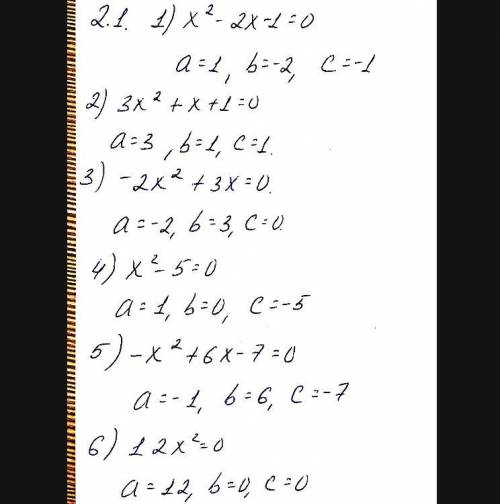 2.1. 1) x² - 2x - 1 = 0
a = 1, b = -2, c = -1
2) 3x² + x + 1 = 0
a = 3, b = 1, c = 1.
3) -2x² + 3x = 0.
a = -2, b = 3, c = 0.
4) x² - 5 = 0
a = 1, b = 0, c = -5
5) -x² + 6x - 7 = 0
a = -1, b = 6, c = -7
6) 12x² = 0
a = 12, b = 0, c = 0